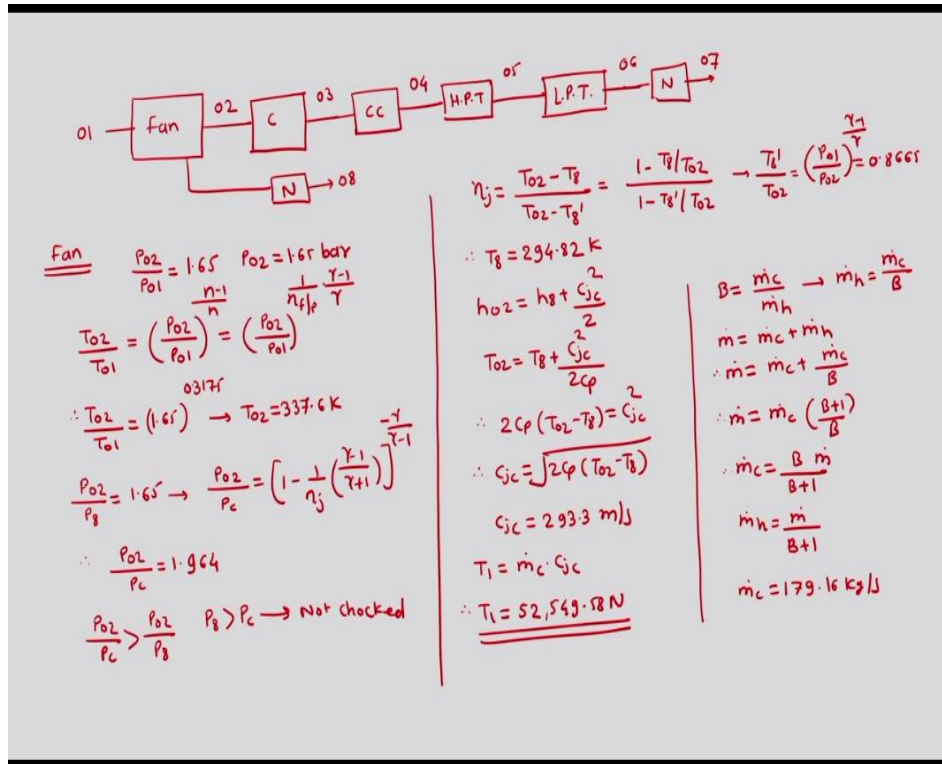 01 Fan 02 C 03 CC 04 H.P.T 05 L.P.T. 06 N 07
N 08
Fan
P02/P01 = 1.65 P02 = 1.65 bar
T02/T01 = (P02/P01)^(n-1/n) = (P02/P01)^(1/ηf|p γ-1/γ)
∴ T02/T01 = (1.65)^03175 → T02 = 337.6 K
P02/P8 = 1.65 → P02/Pc = [1 - 1/ηj (γ-1/γ+1)]^(-γ/γ-1)
∴ P02/Pc = 1.964
P02/Pc > P02/P8 P8 > Pc → Not chocked
ηj = T02-T8/T02-T8' = 1-T8/T02/1-T8'/T02 → T8'/T02 = (P01/P02)^(γ-1/γ) = 0.8665
∴ T8 = 294.82 K
h02 = h8 + Cjc²/2
T02 = T8 + Cjc²/2Cp
∴ 2Cp(T02-T8) = Cjc²
∴ Cjc = √2Cp(T02-T8)
Cjc = 293.3 m/s
T1 = ṁc. Cjc
∴ T1 = 52,549.58 N
B = ṁc/ṁh → ṁh = ṁc/B
ṁ = ṁc + ṁh
∴ ṁ = ṁc + ṁc/B
∴ ṁ = ṁc (B+1/B)
∴ ṁc = B ṁ/B+1
ṁh = ṁ/B+1
ṁc = 179.16 kg/s